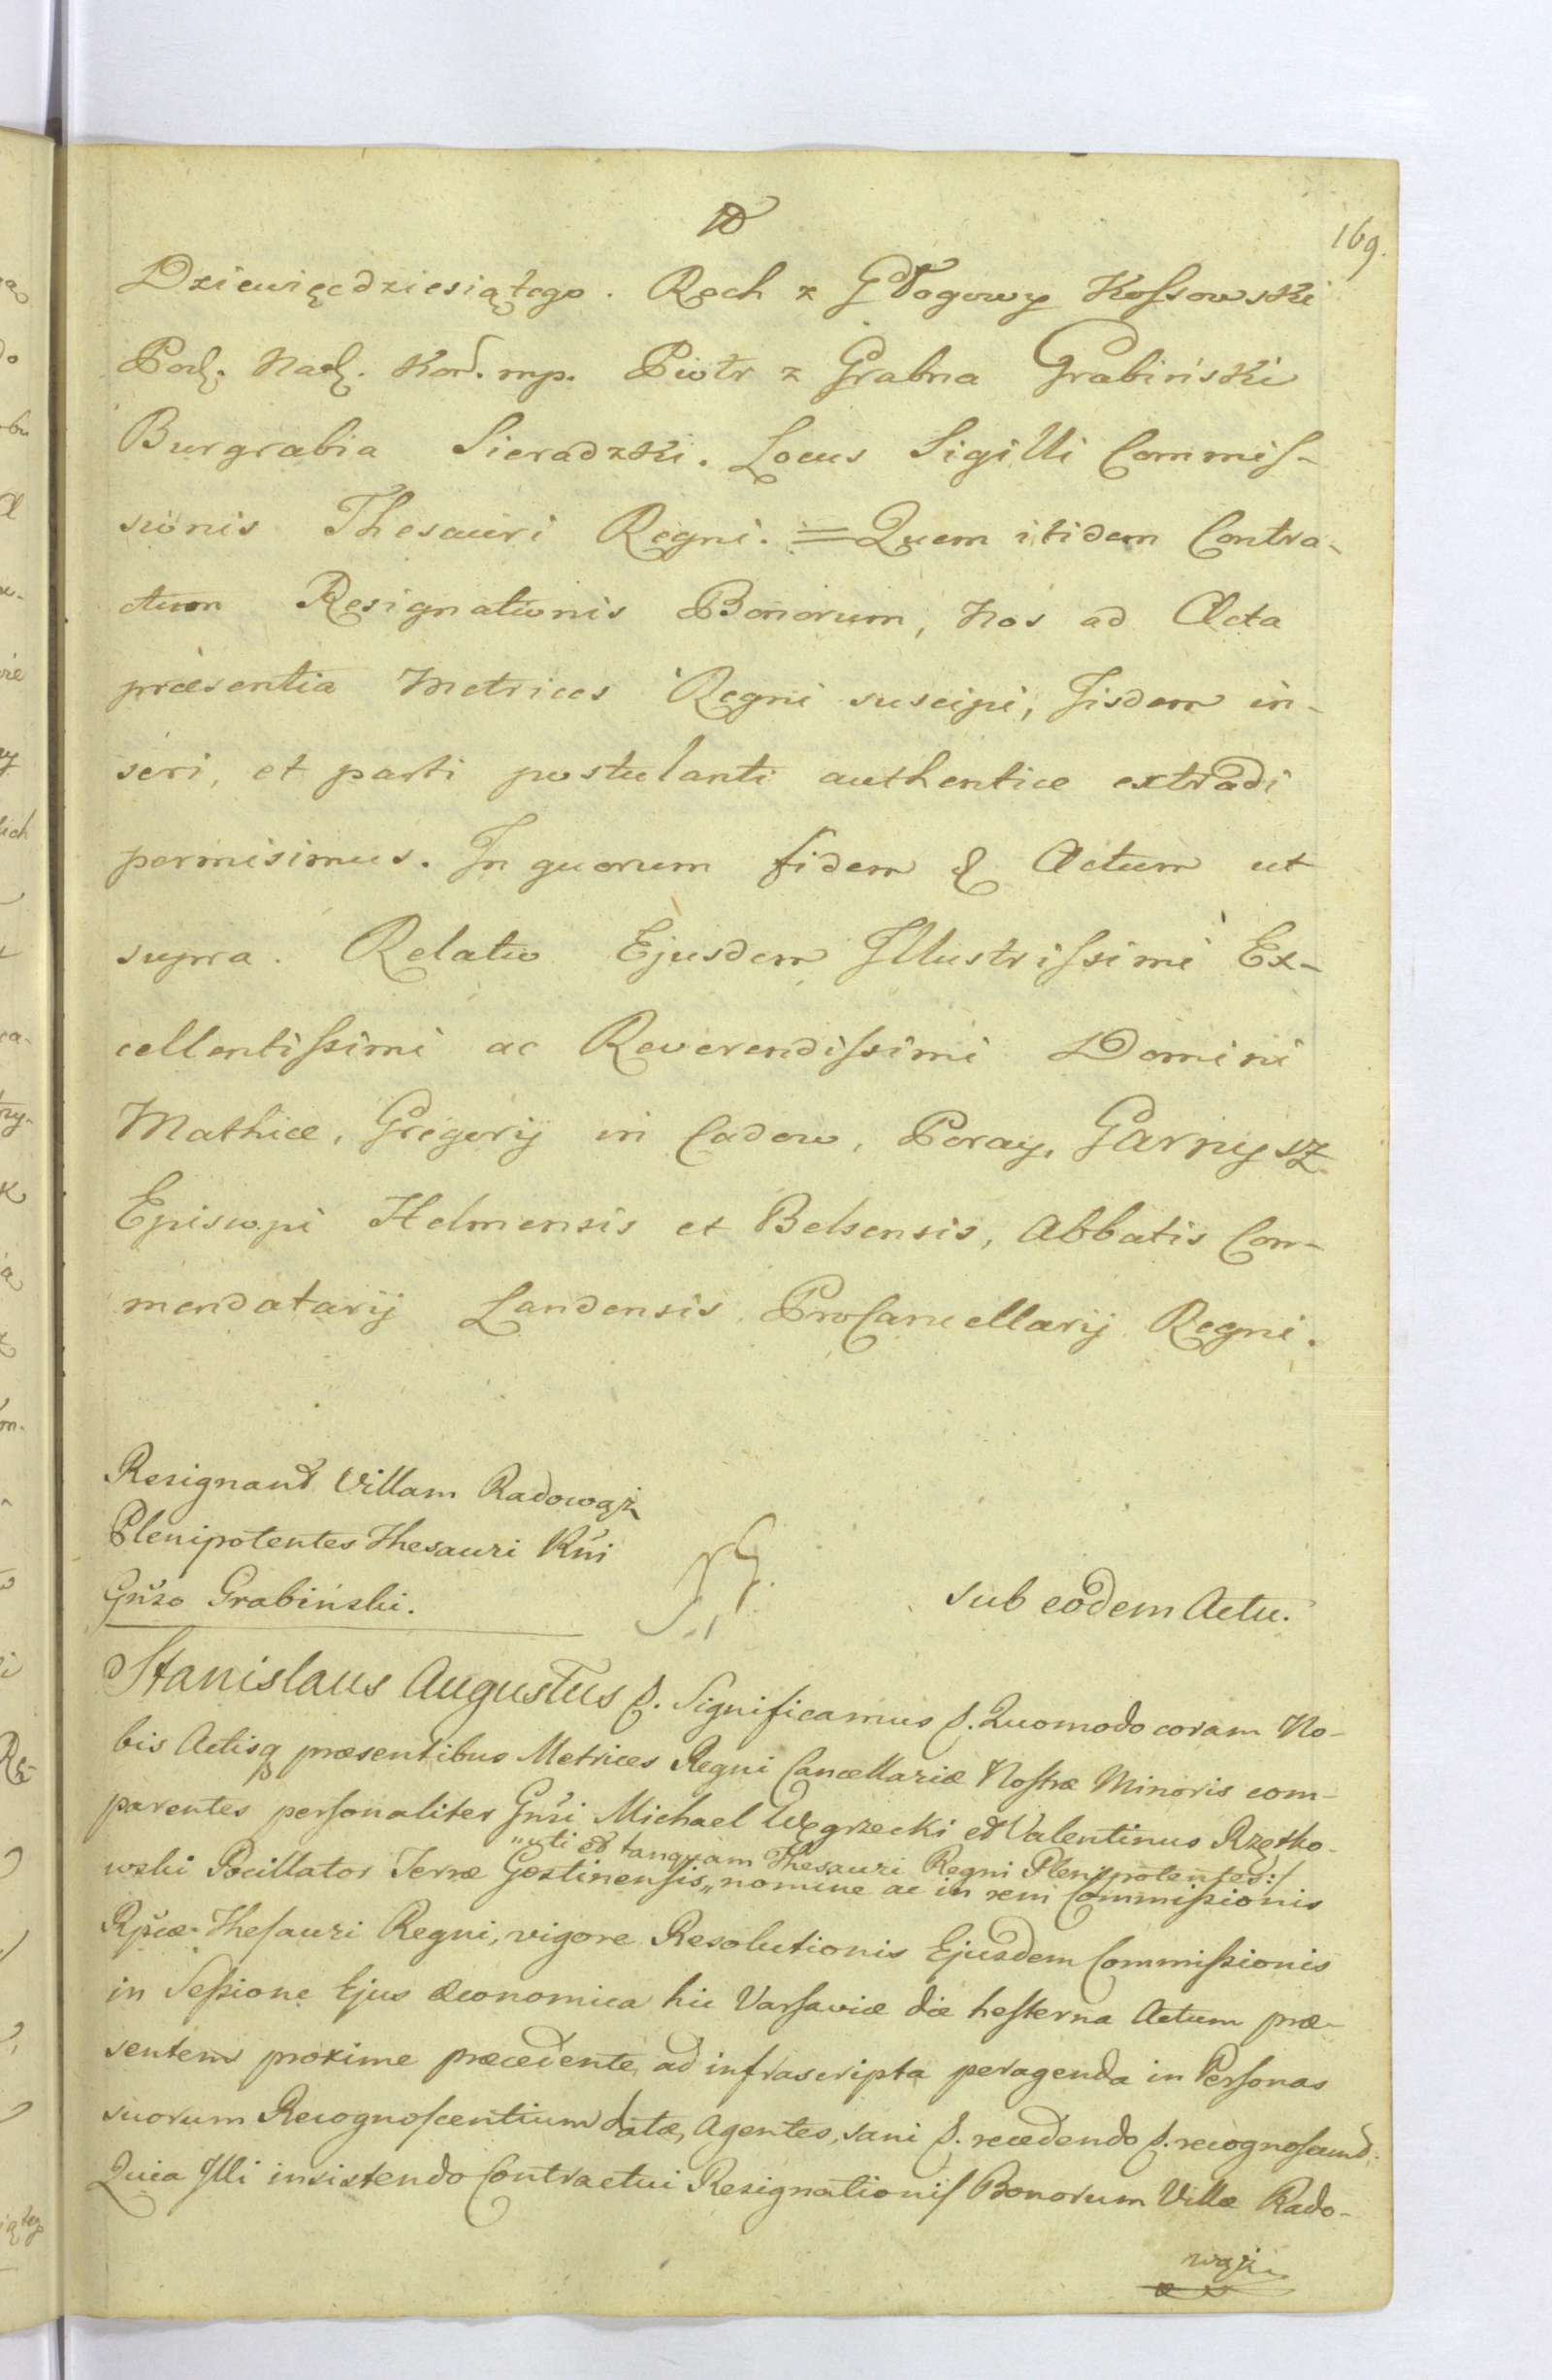 169.
Dziewięćdziesiątego. Roch z Głogowy Kossowski
Pod. Nad. Kor. mp. Piotr z Grabna Grabiński
Burgrabia Sieradzki. Locus Sigilli Commis-
sionis Thesauri Regni. = Quem itidem Contra-
ctum Resignationis Bonorum, Nos ad Acta
præsentia Metrices Regni suscipi, Iisdem in-
seri, et parti postulanti authentice extradi
permisimus. In quorum fidem & Actum ut
supra. Relatio Ejusdem Illustrissimi Ex-
cellentissimi ac Reverendissimi Domini
Mathiæ, Gregorij in Cadow, Poray, Garnysz
Episcopi Helmensis et Belsensis, Abbatis Com-
mendatarij Landensis ProCancellarij Regni.
Resignant Villam Radowąż
Plenipotentes Thesauri Rñi
Gñso Grabiński.
sub eodem Actu.
Stanislaus Augustus &. Significamus &. Quomodo coram No-
bis Actisq præsentibus Metrices Regni Cancellariæ Nostræ Minoris com-
parentes personaliter Gñsi Michael Węgrzecki et Valentinus Rzętko-
„uti et tanquam Thesauri Regni Plenipotentes:/
wski Pocillator Terræ Gostinensis „ nomine ac in rem Commissionis
Rp̃cæ Thesauri Regni, vigore Resolutionis Ejusdem Commissionis
in Sessione Ejus Œconomica hic Varsaviæ die hesterna Actum præ-
sentem proxime præcedente, ad infrascripta peragenda in Personas
suorum Recognoscentium datæ, Agentes, sani &. recedendo &. recognoscund:
Quia Illi insistendo Contractui Resignationis Bonorum Villæ Rado-
wąż